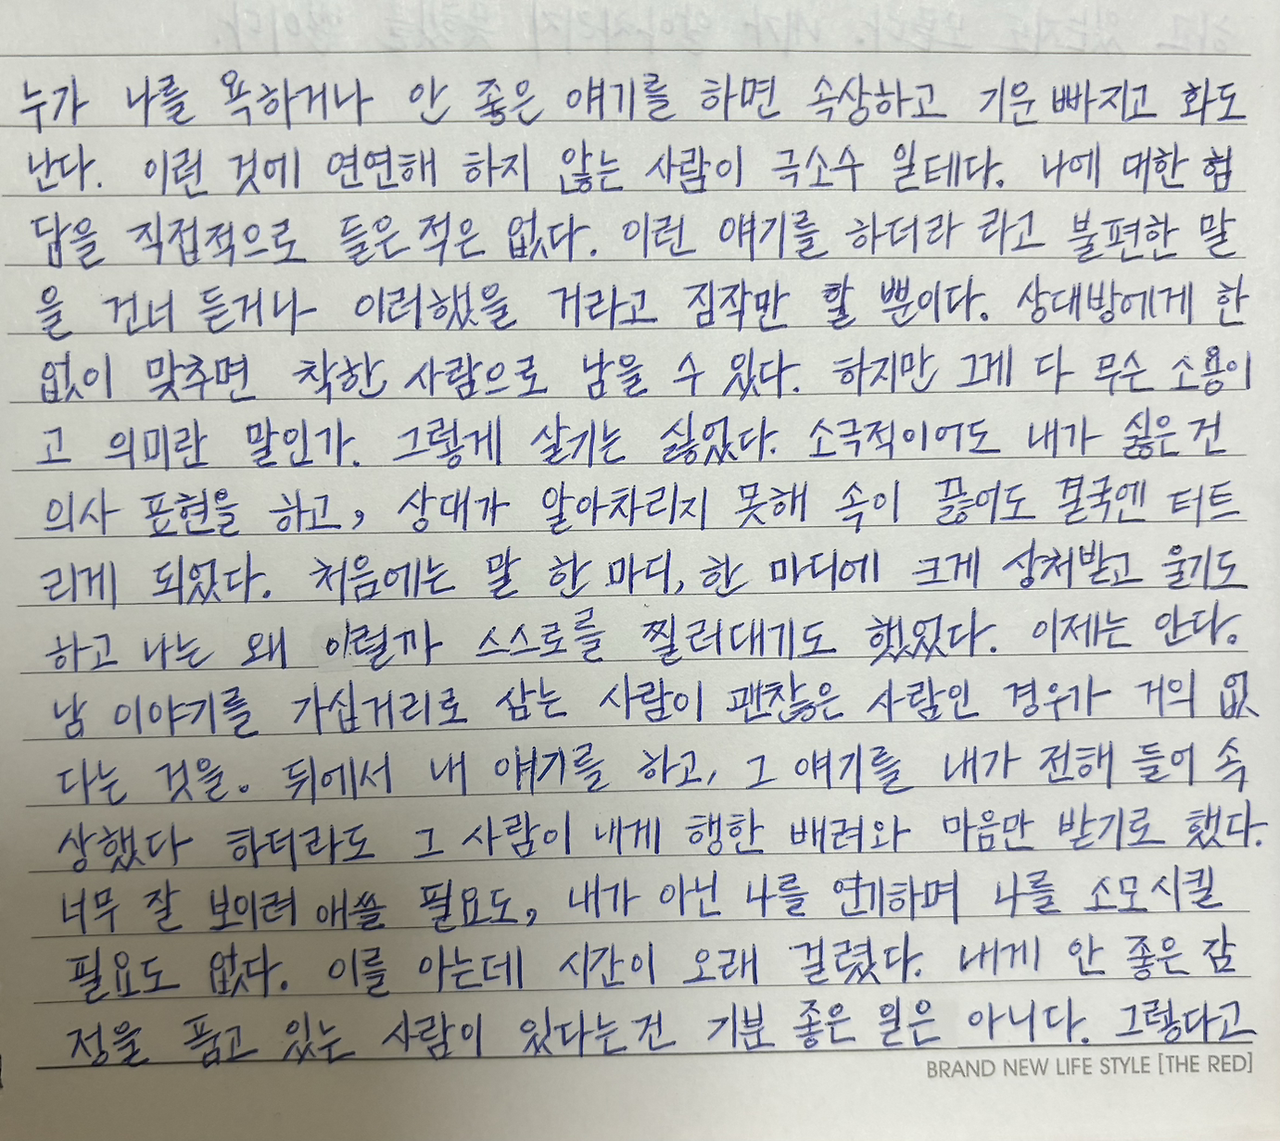 누가 나를 욕하거나 안 좋은 얘기를 하면 속상하고 기운 빠지고 화도
난다. 이런 것에 연연해 하지 않는 사람이 극소수 일테다. 나에 대한 험
담을 직접적으로 들은 적은 없다. 이런 얘기를 하더라 라고 불편한 말
을 건너 듣거나 이러했을 거라고 짐작만 할 뿐이다. 상대방에게 한
없이 맞추면 착한 사람으로 남을 수 있다. 하지만 그게 다 무슨 소용이
고 의미란 말인가. 그렇게 살기는 싫었다. 소극적이어도 내가 싫은 건
의사 표현을 하고, 상대가 알아차리지 못해 속이 끓어도 결국엔 터트
리게 되었다. 처음에는 말 한 마디, 한 마디에 크게 상처받고 울기도
하고 나는 왜 이럴까 스스로를 찔러대기도 했었다. 이제는 안다.
남 이야기를 가십거리로 삼는 사람이 괜찮은 사람인 경우가 거의 없
다는 것을. 뒤에서 내 얘기를 하고, 그 얘기를 내가 전해 들어 속
상했다 하더라도 그 사람이 내게 행한 배려와 마음만 받기로 했다.
너무 잘 보이려 애쓸 필요도, 내가 아닌 나를 연기하며 나를 소모시킬
필요도 없다. 이를 아는데 시간이 오래 걸렸다. 내게 안 좋은 감
정을 품고 있는 사람이 있다는 건 기분 좋은 일은 아니다. 그렇다고
BRAND NEW LIFE STYLE [THE RED]